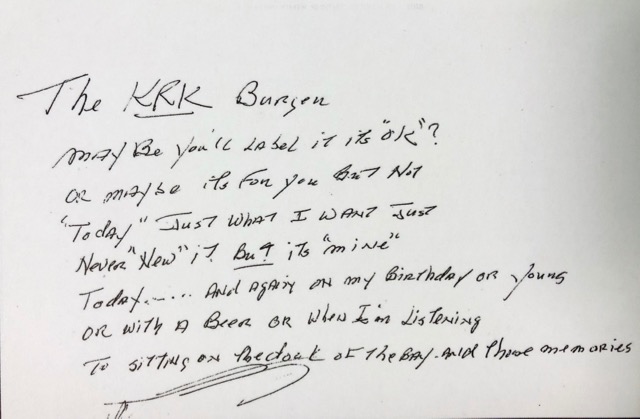 The KRK Burger
MAYBe You'll LABel it its "OK"?
OR maybe its for you But Not
"Today" Just What I WANT Just
Never "New" it. But its "mine"
Today...... And Again on my Birthday or young
OR with A Beer OR When I'm Listening
To sitting on the dock of the BAy. And Those memories